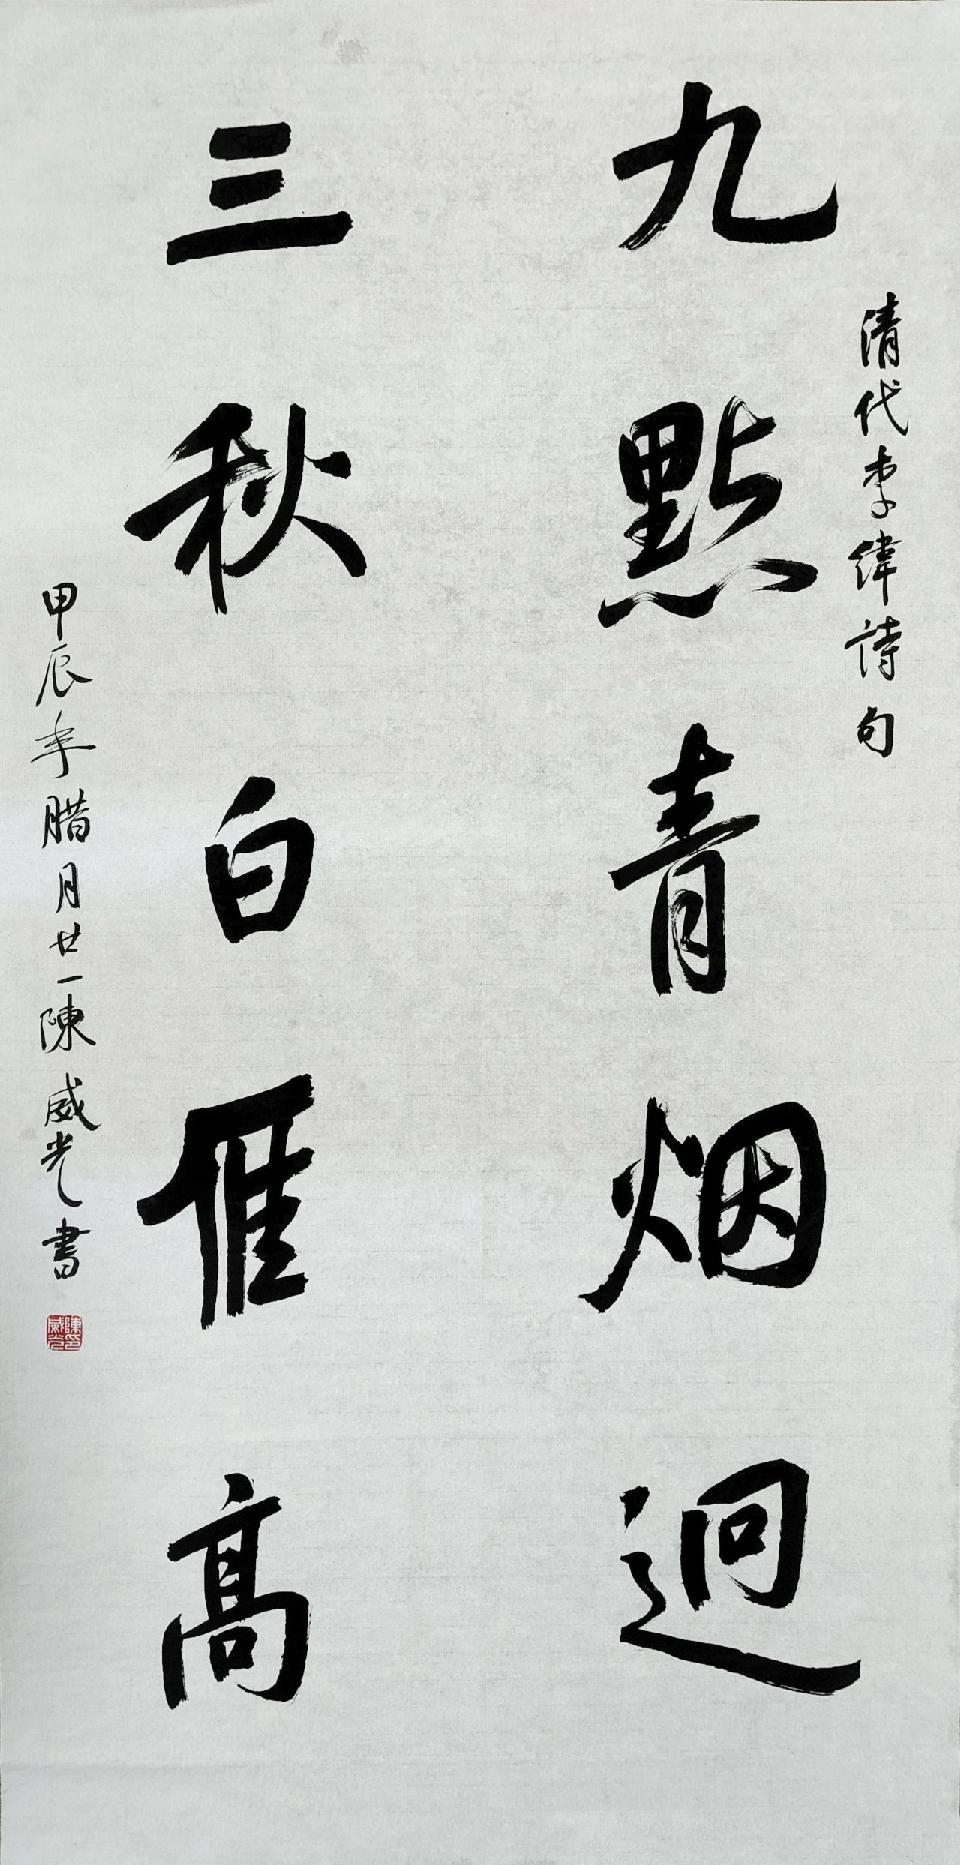 九點青烟迥
清代李緯詩句
三秋白雁高
甲辰年腊月廿一陳威光書
陳威光印